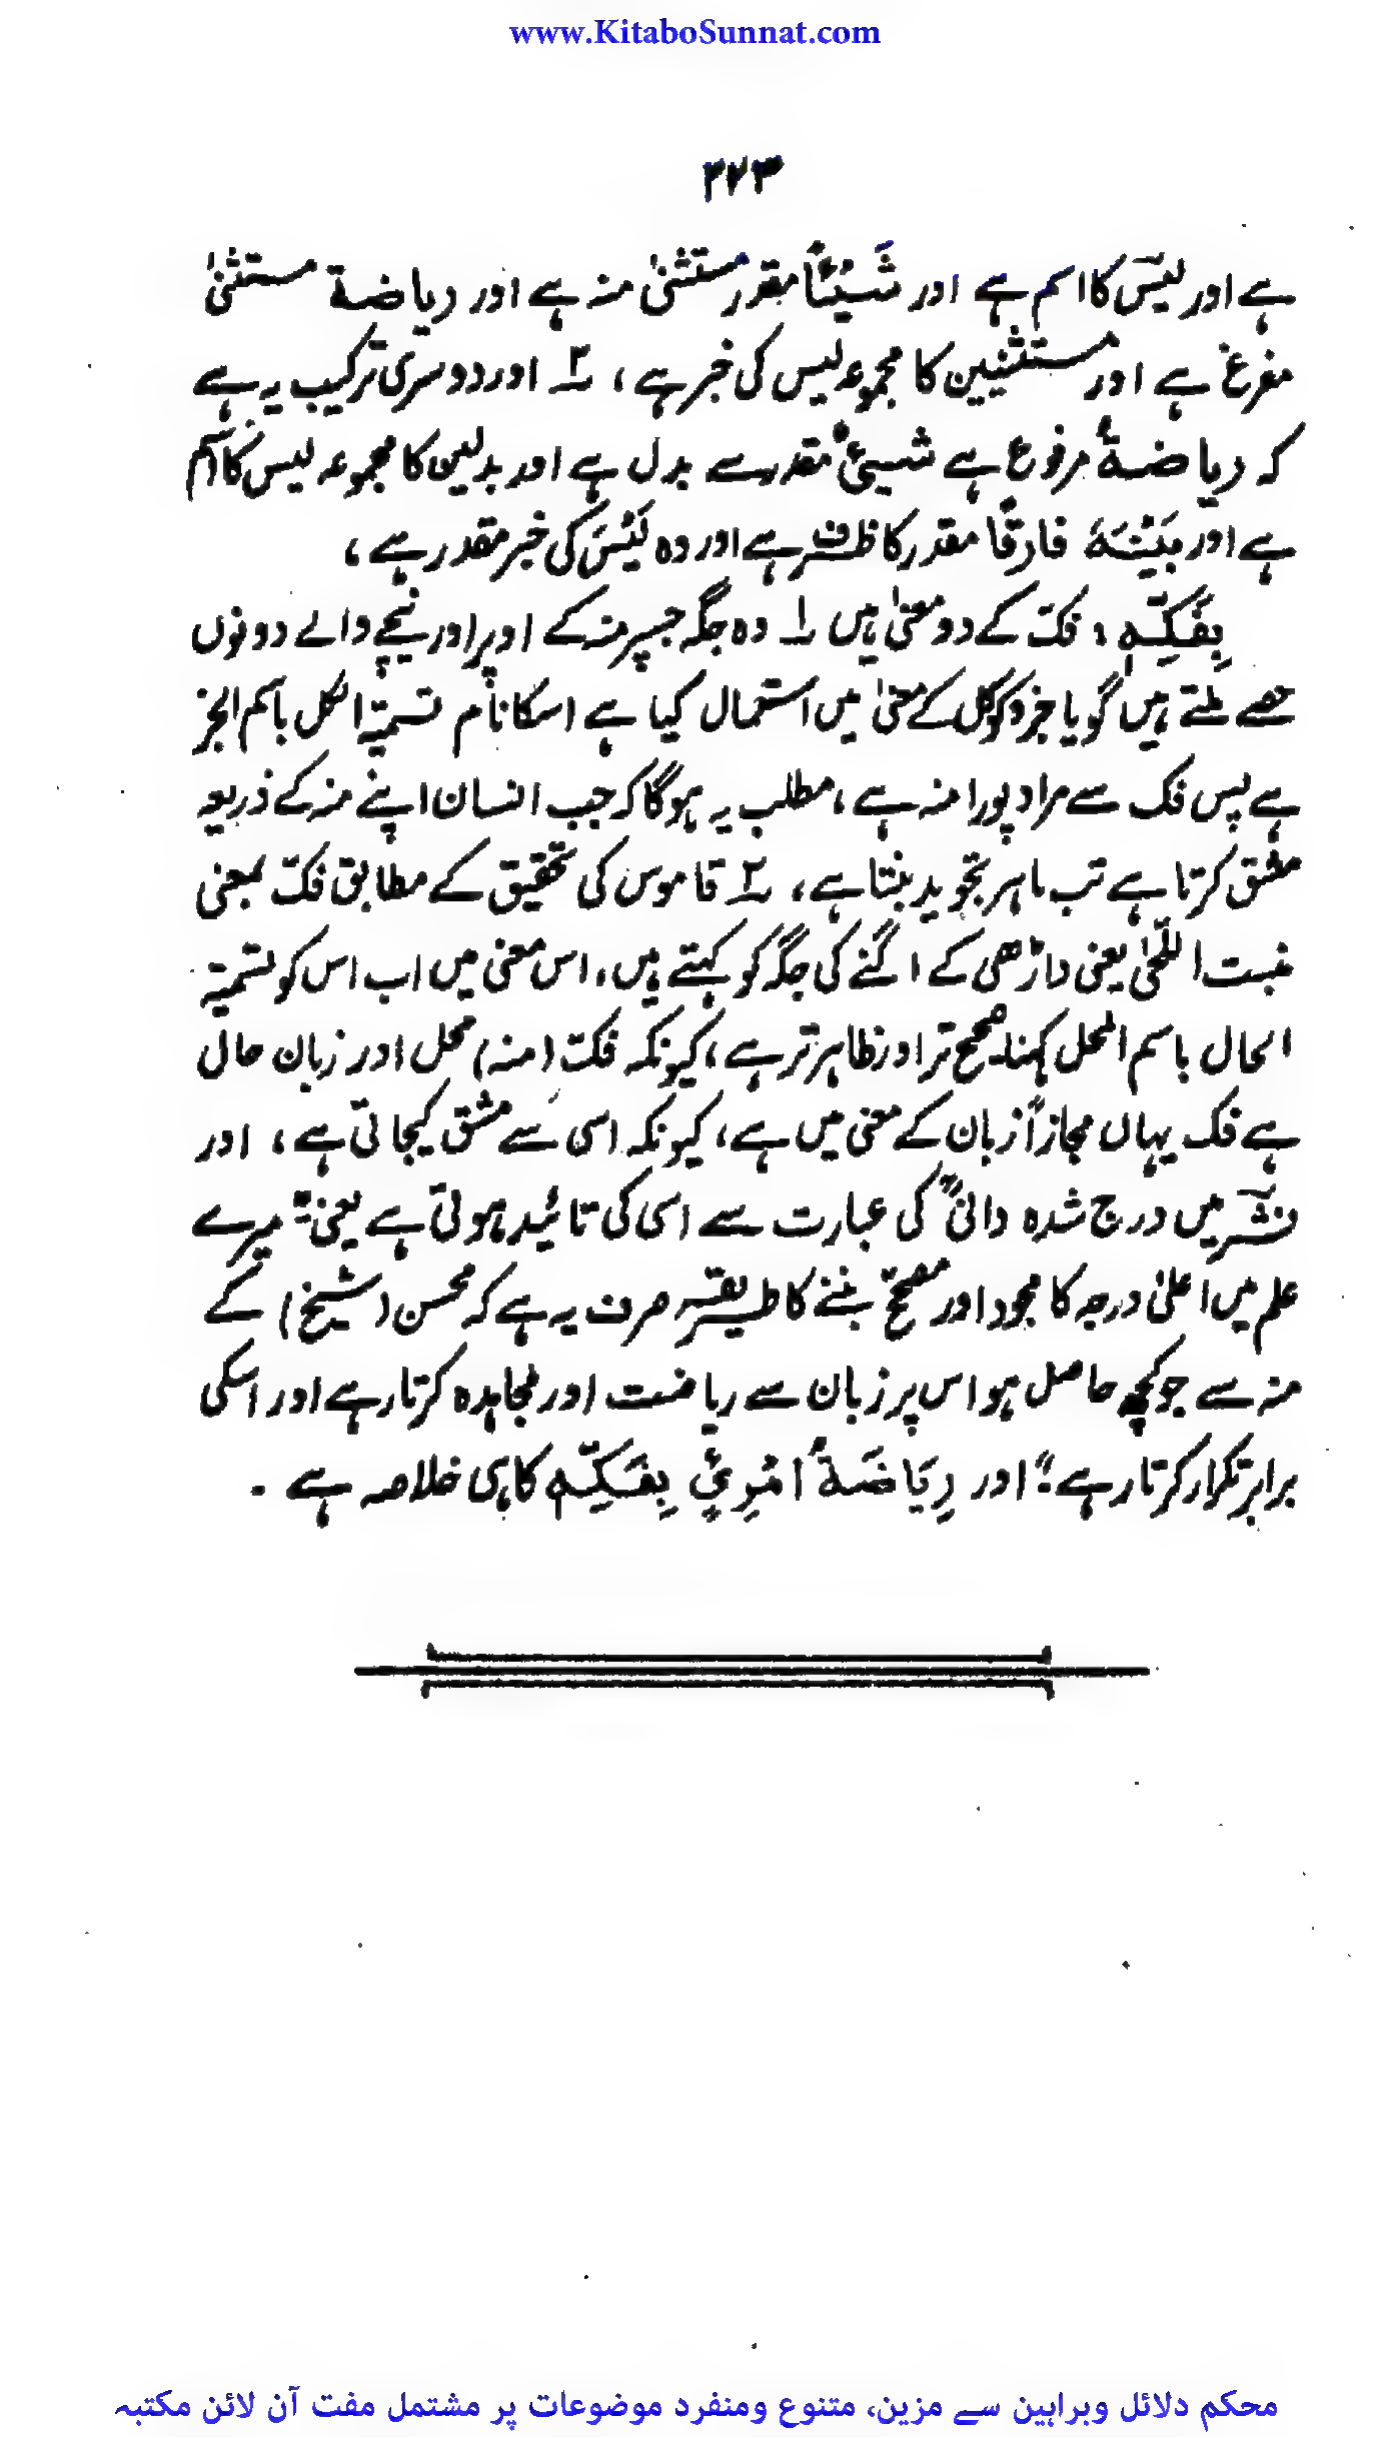 www.KitaboSunnat.com
۲۷۳
ہے اور لیسَ کا اسم ہے اور شَیْئًا مقدر مستثنیٰ منہ ہے اور ریاضۃ مستثنیٰ
مفرغ ہے اور مستثنیین کا مجموعہ لیس کی خبر ہے، ۲؎ اور دوسری ترکیب یہ ہے
کہ ریاضۃٌ مرفوع ہے شیئٌ مقدر سے بدل ہے اور بدلین کا مجموعہ لیس کا اسم
ہے اور بَیْنَہٗ فارقًا مقدر کا ظرف ہے اور وہ لَیْسَ کی خبر مقدر ہے،
بِفَکِّہٖ، فک کے دو معنیٰ ہیں ۱؎ وہ جگہ جسپر منہ کے اوپر اور نیچے والے دونوں
حصے ملتے ہیں گویا جزو کو کل کے معنیٰ میں استعمال کیا ہے اسکا نام تسمیۃ الکل باسم الجز
ہے پس فک سے مراد پورا منہ ہے، مطلب یہ ہوگا کہ جب انسان اپنے منہ کے ذریعہ
مشق کرتا ہے تب ماہر تجوید بنتا ہے، ۲؎ قاموس کی تحقیق کے مطابق فک بمعنی
منبت اللّحیٰ یعنی داڑھی کے اگنے کی جگہ کو کہتے ہیں، اس معنی میں اب اس کو تسمیۃ
الحال باسم المحل کہنا صحیح تر اور ظاہر تر ہے، کیونکہ فک (منہ) محل اور زبان حال
ہے فک یہاں مجازاً زبان کے معنی میں ہے، کیونکہ اسی سے مشق کیجاتی ہے، اور
نشر میں درج شدہ دانیؒ کی عبارت سے اسی کی تائید ہوتی ہے یعنی: "میرے
علم میں اعلیٰ درجہ کا مجود اور مصحّح بننے کا طریقہ صرف یہ ہے کہ محسن (شیخ) کے
منہ سے جو کچھ حاصل ہو اس پر زبان سے ریاضت اور مجاہدہ کرتا رہے اور اسکی
برابر تکرار کرتا رہے" اور رِیَاضَۃُ امْرِئٍ بِفَکِّہٖ کا یہی خلاصہ ہے ۔
محکم دلائل وبراہین سے مزین، متنوع ومنفرد موضوعات پر مشتمل مفت آن لائن مکتبہ